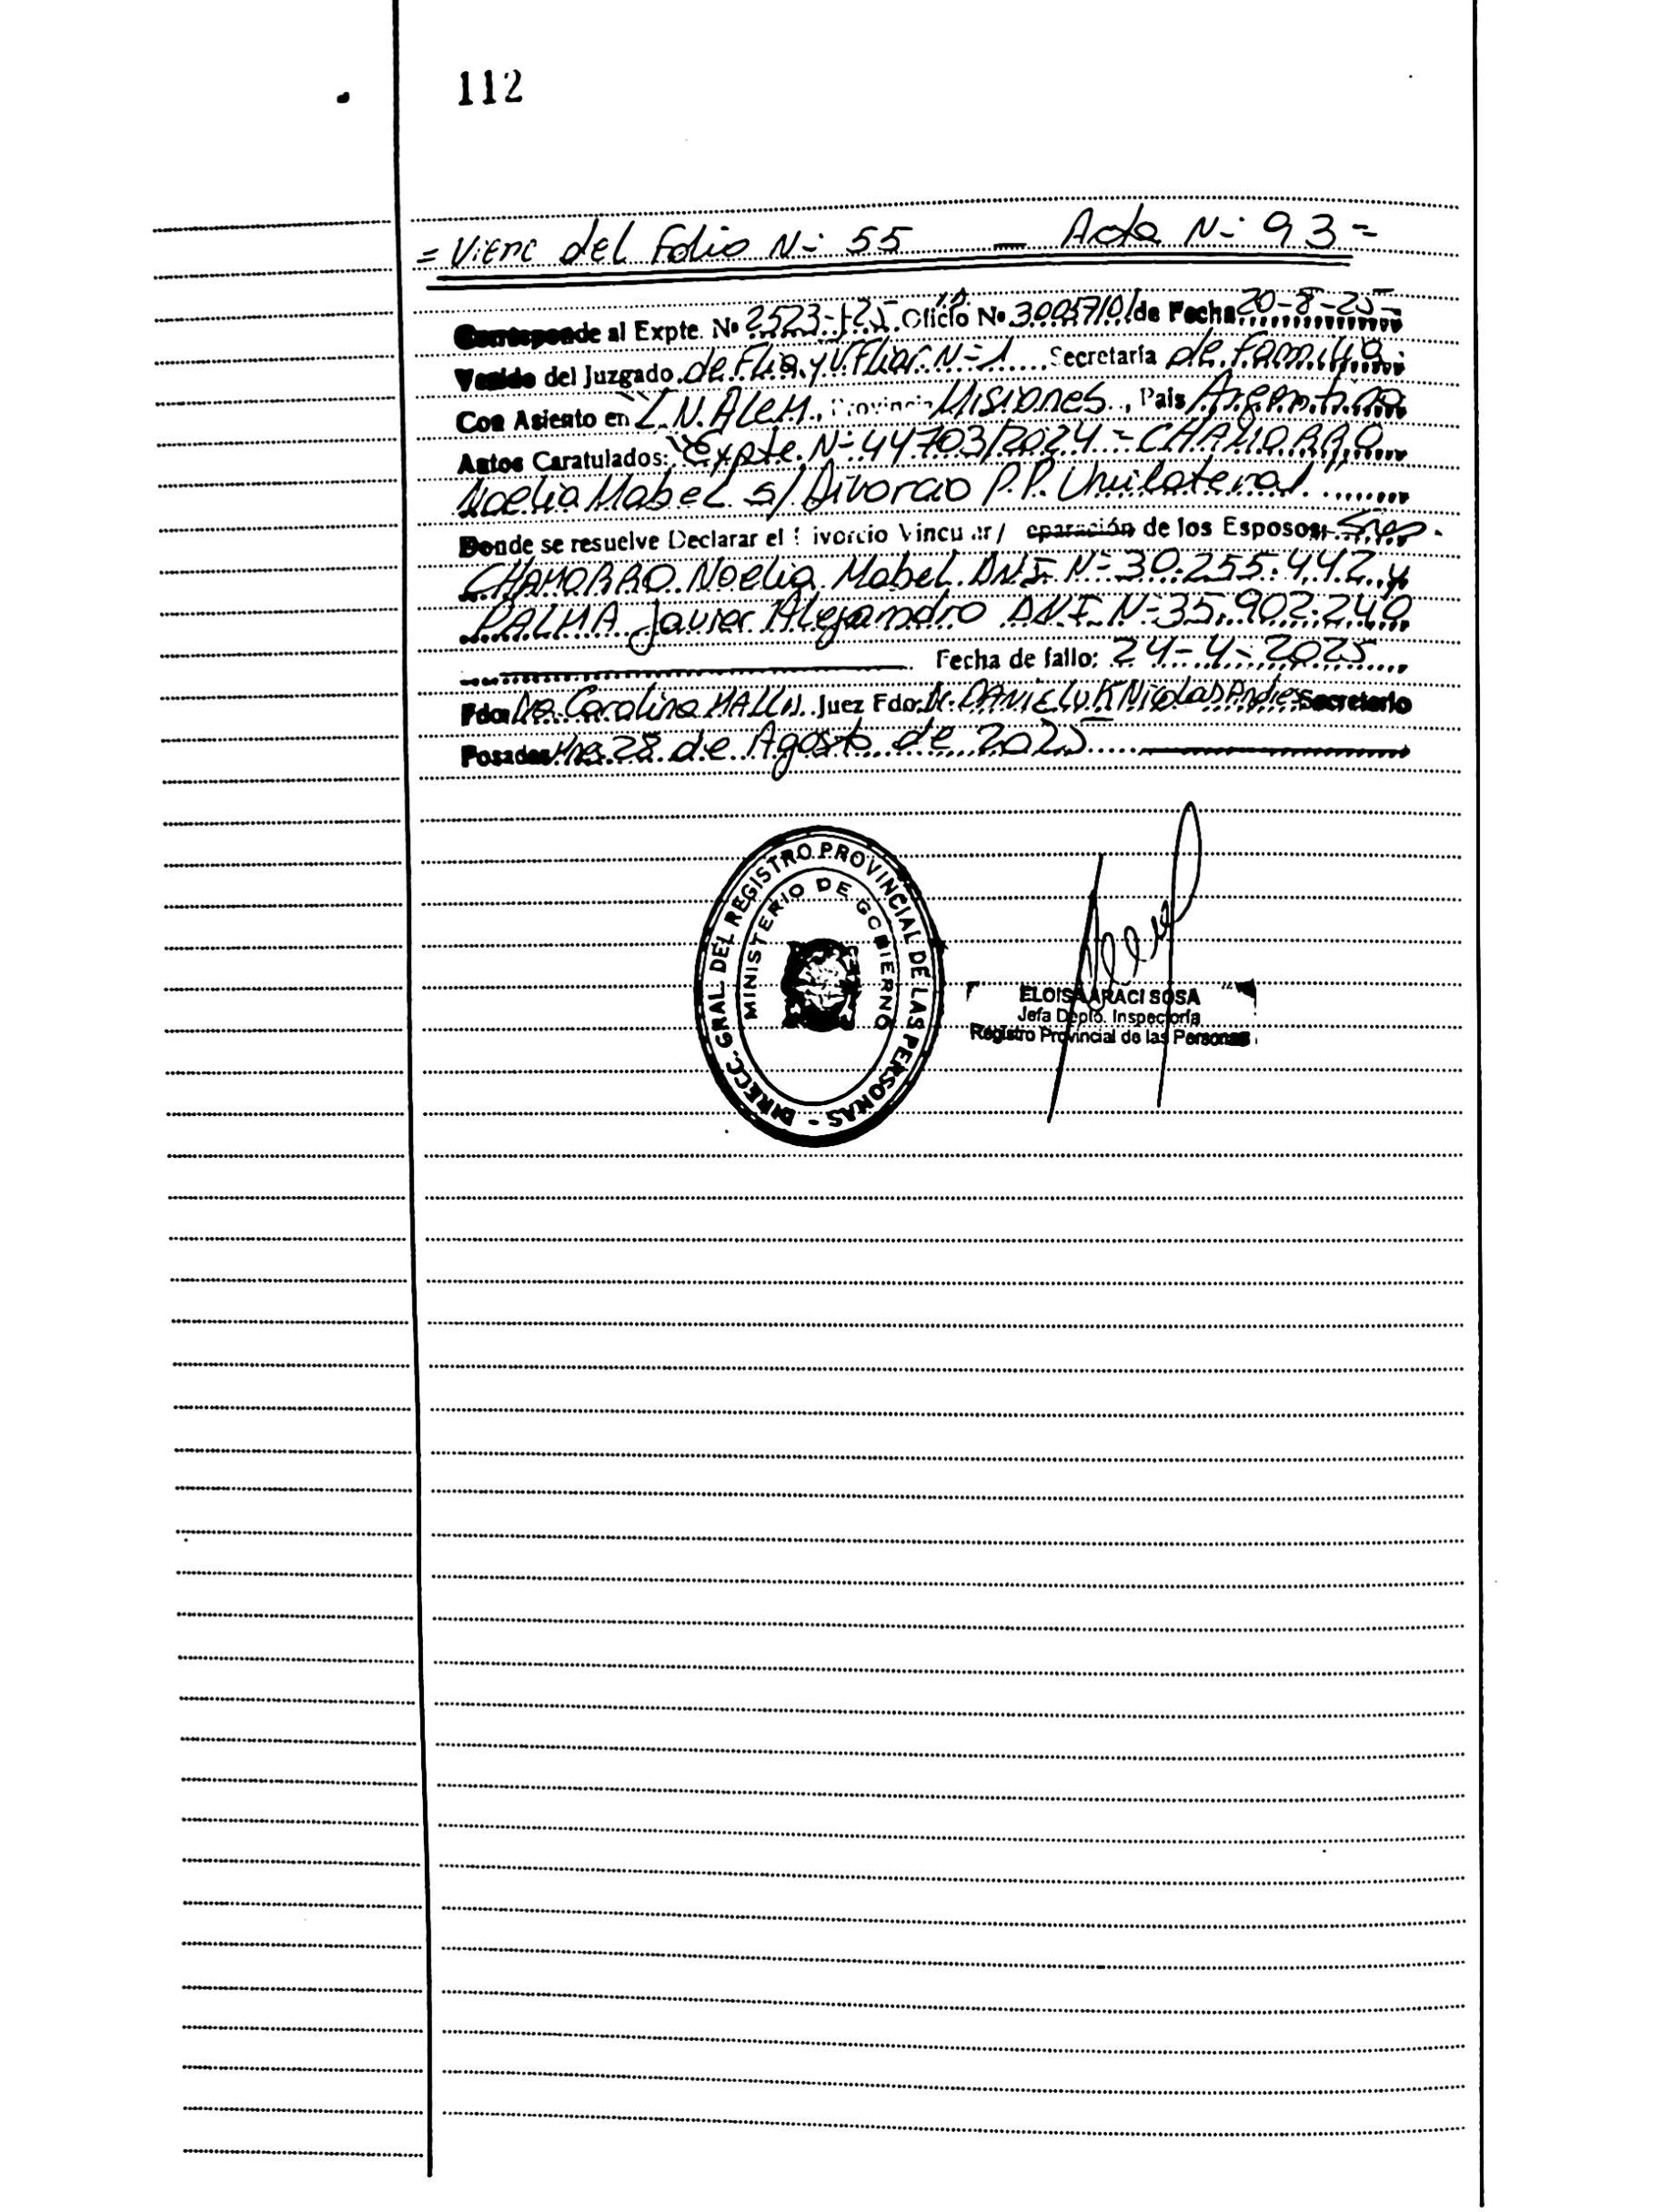 112
= Viene del Folio N: 55 — Acta N: 93 =
Corresponde al Expte. Nº 2523-J-25 Oficio Nº 3005710/ de Fecha 20-8-25-
Venido del Juzgado de Flia. y V. Fliar. N-1 Secretaría de Familia.
Con Asiento en L.N. ALEM, Provincia Misiones, Pais Argentina
Autos Caratulados: "Expte. N-44703/2024 = CHAMORRO
Noelia Mabel s/ Divorcio P.P. Unilateral"
Donde se resuelve Declarar el Divorcio Vincular/ eparación de los Esposos: Sres.
CHAMORRO Noelia Mabel DNI N-30.255.442 y
PALMA Javier Alejandro DNI N-35.902.240
Fecha de fallo: 24-4-2025
Fdo: Dra. Carolina Juez Fdo: Dr. DANIELUK Nicolas Andres Secretario
Posadas Mnes 28 de Agosto de 2025
DIRECC. GRAL. DEL REGISTRO PROVINCIAL DE LAS PERSONAS -
MINISTERIO DE GOBIERNO
ELOISA ARACI SOSA
Jefa Depto. Inspectoría
Registro Provincial de las Personas